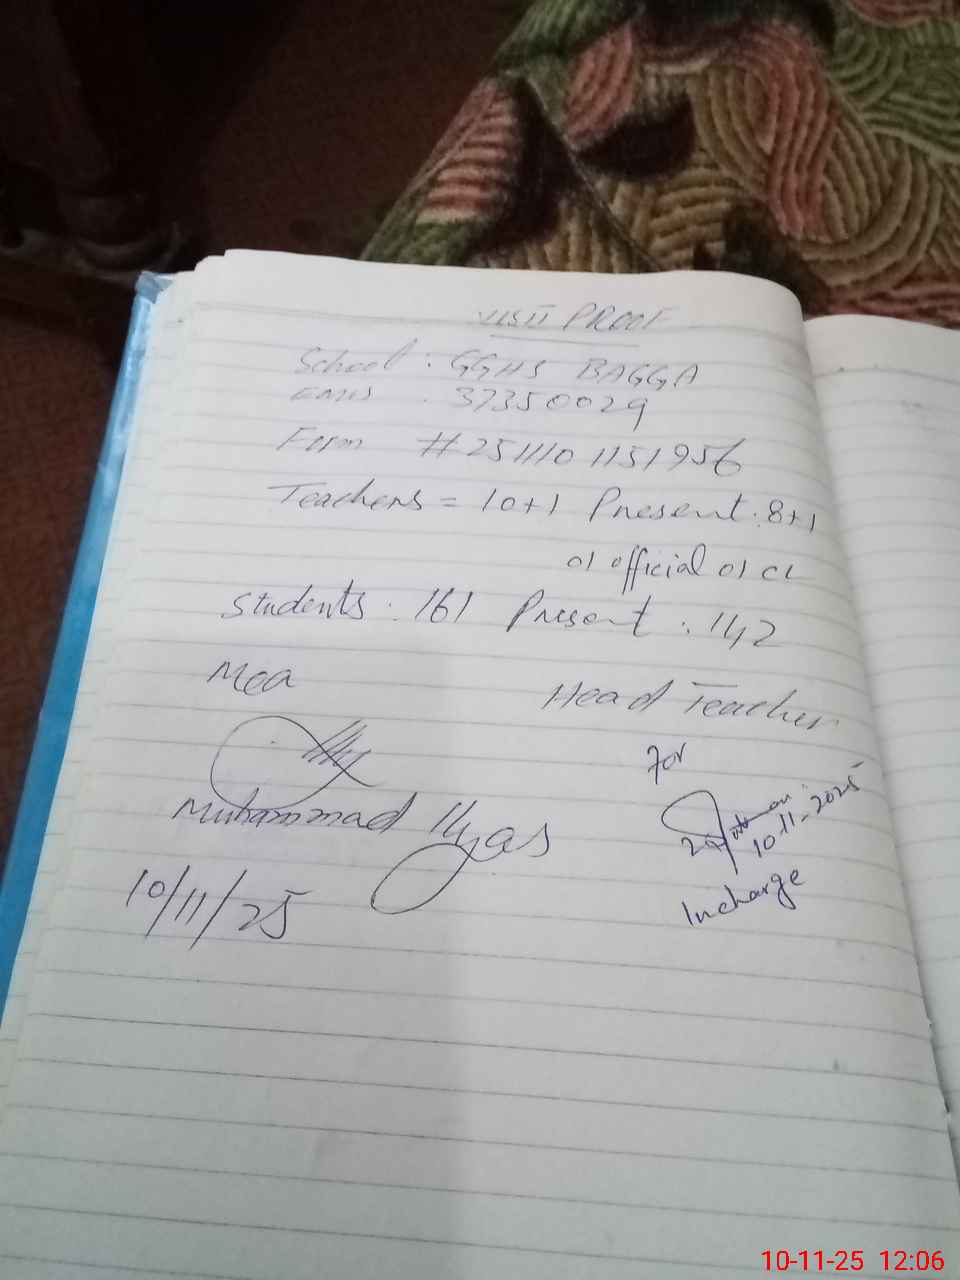 VISIT PROOF
School : GGHS BAGGA
EMIS . 37350029
Form #2511101151956
Teachers = 10+1 Present . 8+1
01 official 01 CL
Students . 161 Present . 142
Mea
Head Teacher
For
Muhammad Ilyas
10-11-2025
Incharge
10/11/25
10-11-25 12:06